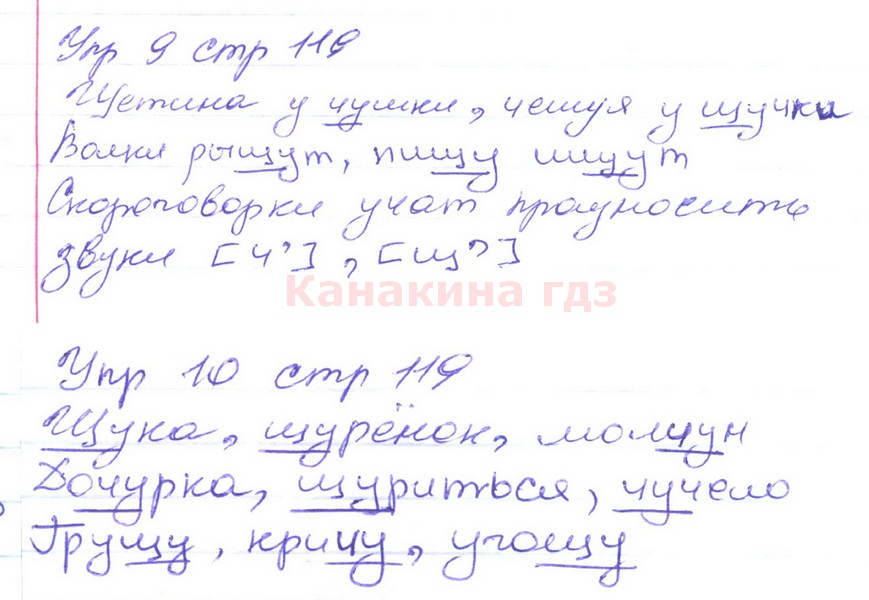 Упр 9 стр 119
Щетина у чушки, чешуя у щучки
Волки рыщут, пищу ищут
Скороговорки учат произносить
звуки [ч'], [щ']
Канакина гдз
Упр 10 стр 119
Щука, щурёнок, молчун
Дочурка, щуриться, чучело
Грущу, кричу, угощу